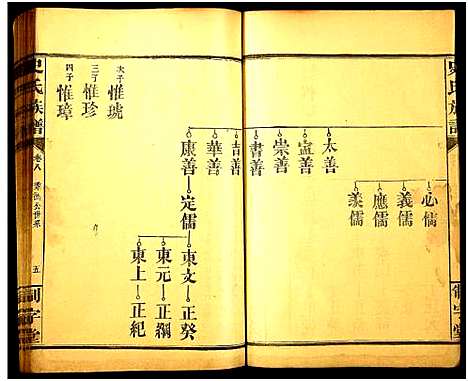 史氏族譜
心儒
義儒
應儒
羨儒
太善
宣善
崇善
書善
吉善
華善
康善 定儒 東文 正癸
東元 正綱
東上 正紀
次子 惟琥
三子 惟珍
四子 惟璋
史氏族譜
卷八
五